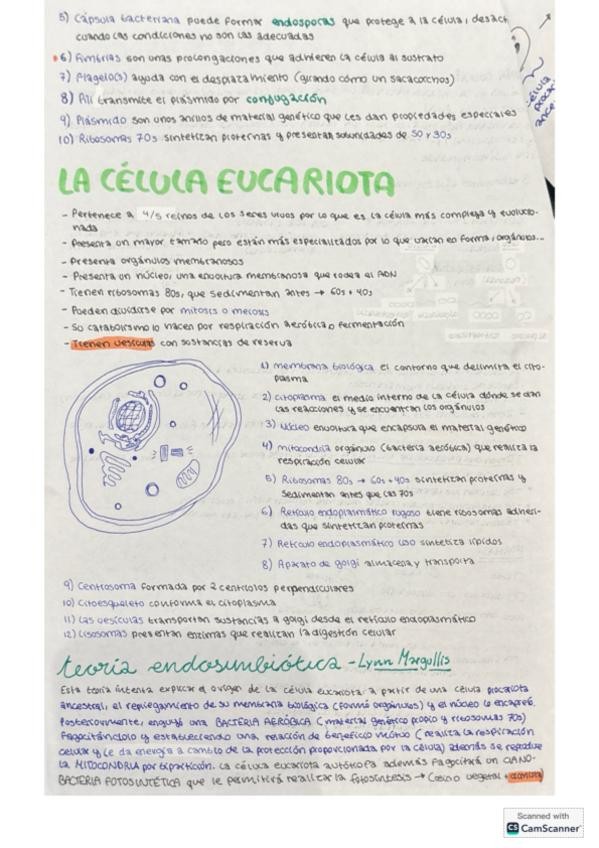 5) Cápsula bacteriana puede formar endosporas que protege a la célula, desact
cuando las condiciones no son las adecuadas
6) Fimbrias son unas prolongaciones que adhieren la célula al sustrato
7) Flagelo(s) ayuda con el desplazamiento (girando cómo un sacacorchos)
8) Pili transmite el plásmido por conjugación
9) Plásmido son unos anillos de material genético que les dan propiedades especiales
10) Ribosomas 70s sintetizan proteínas y presentan subunidades de 50 y 30s
LA CÉLULA EUCARIOTA
- Pertenece a 4/5 reinos de los seres vivos por lo que es la célula más compleja y evolucio-
nada
- Presenta un mayor tamaño pero están más especializados por lo que varían en forma, orgánulos...
- Presenta orgánulos membranosos
- Presenta un núcleo, una envoltura membranosa que rodea el ADN
- Tienen ribosomas 80s, que sedimentan antes → 60s + 40s
- Pueden dividirse por mitosis o meiosis
- Su catabolismo lo hacen por respiración aeróbica o fermentación
- Tienen vesículas con sustancias de reserva
1) membrana biológica el contorno que delimita el cito-
plasma
2) citoplasma el medio interno de la célula dónde se dan
las reacciones y se encuentran los orgánulos
3) Núcleo envoltura que encapsula el material genético
4) mitocondria orgánulo (bacteria aeróbica) que realiza la
respiración celular
5) Ribosomas 80s → 60s + 40s sintetizan proteínas y
sedimentan antes que las 70s
6) Retículo endoplasmático rugoso tiene ribosomas adheri-
das que sintetizan proteínas
7) Retículo endoplasmático liso sintetiza lípidos
8) Aparato de golgi almacena y transporta
9) Centrosoma formada por 2 centriolos perpendiculares
10) Citoesqueleto conforma el citoplasma
11) Las vesículas transportan sustancias a golgi desde el retículo endoplasmático
12) Lisosomas presentan enzimas que realizan la digestión celular
teoría endosimbiótica - Lynn Margullis
Esta teoría intenta explicar el origen de la célula eucariota a partir de una célula procariota
ancestral, el replegamiento de su membrana biológica (formó orgánulos) y el núcleo lo encapsó.
Posteriormente, engulló una BACTERIA AERÓBICA (material genético propio y ribosomas 70s)
fagocitándolo y estableciendo una relación de beneficio mútuo (realiza la respiración
celular y le da energía a cambio de la protección proporcionada por la célula) además se reproduce
la MITOCONDRIA por bipartición. La célula eucariota autótrofa además fagocitará un CIANO-
BACTERIA FOTOSINTÉTICA que le permitirá realizar la fotosíntesis →
célula
Scanned with
CS CamScanner